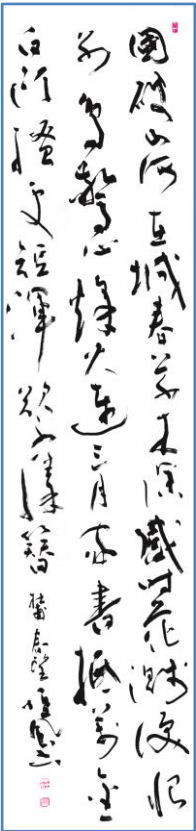 國破山河在城春草木深感時花濺淚恨
別鳥驚心烽火連三月家書抵萬金
白頭搔更短渾欲不勝簪 春望